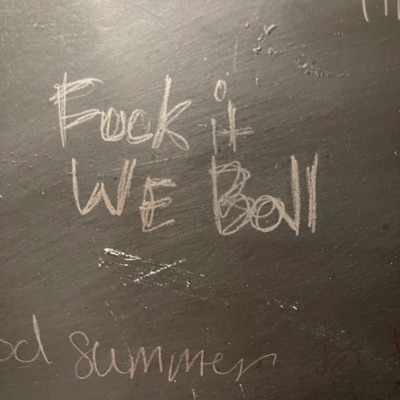 Fuck it
WE Ball
od summer